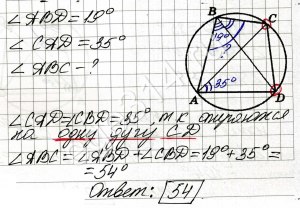 ∠ABD=19°
∠CAD=35°
∠ABC-?
B
C
19°
?
35°
A
D
∠CAD=∠CBD=35°, т.к. опираются
на одну дугу CD
∠ABC=∠ABD+∠CBD=19°+35°=
=54°
Ответ: 54